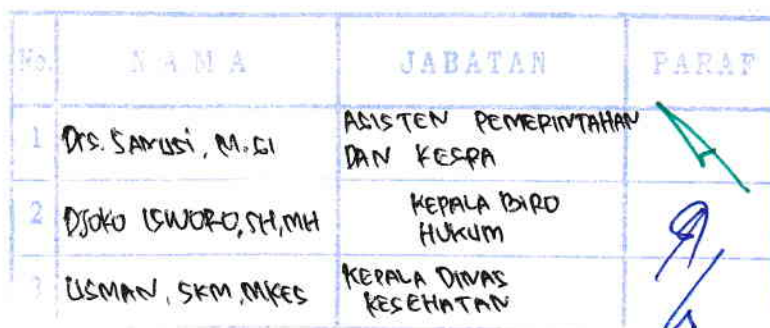 No. NAMA JABATAN PARAF
1 Drs. SANUSI, M.SI ASISTEN PEMERINTAHAN
DAN KESRA
2 DJOKO ISWORO, SH, MH KEPALA BIRO
HUKUM
3 USMAN, SKM, MKES KEPALA DINAS
KESEHATAN